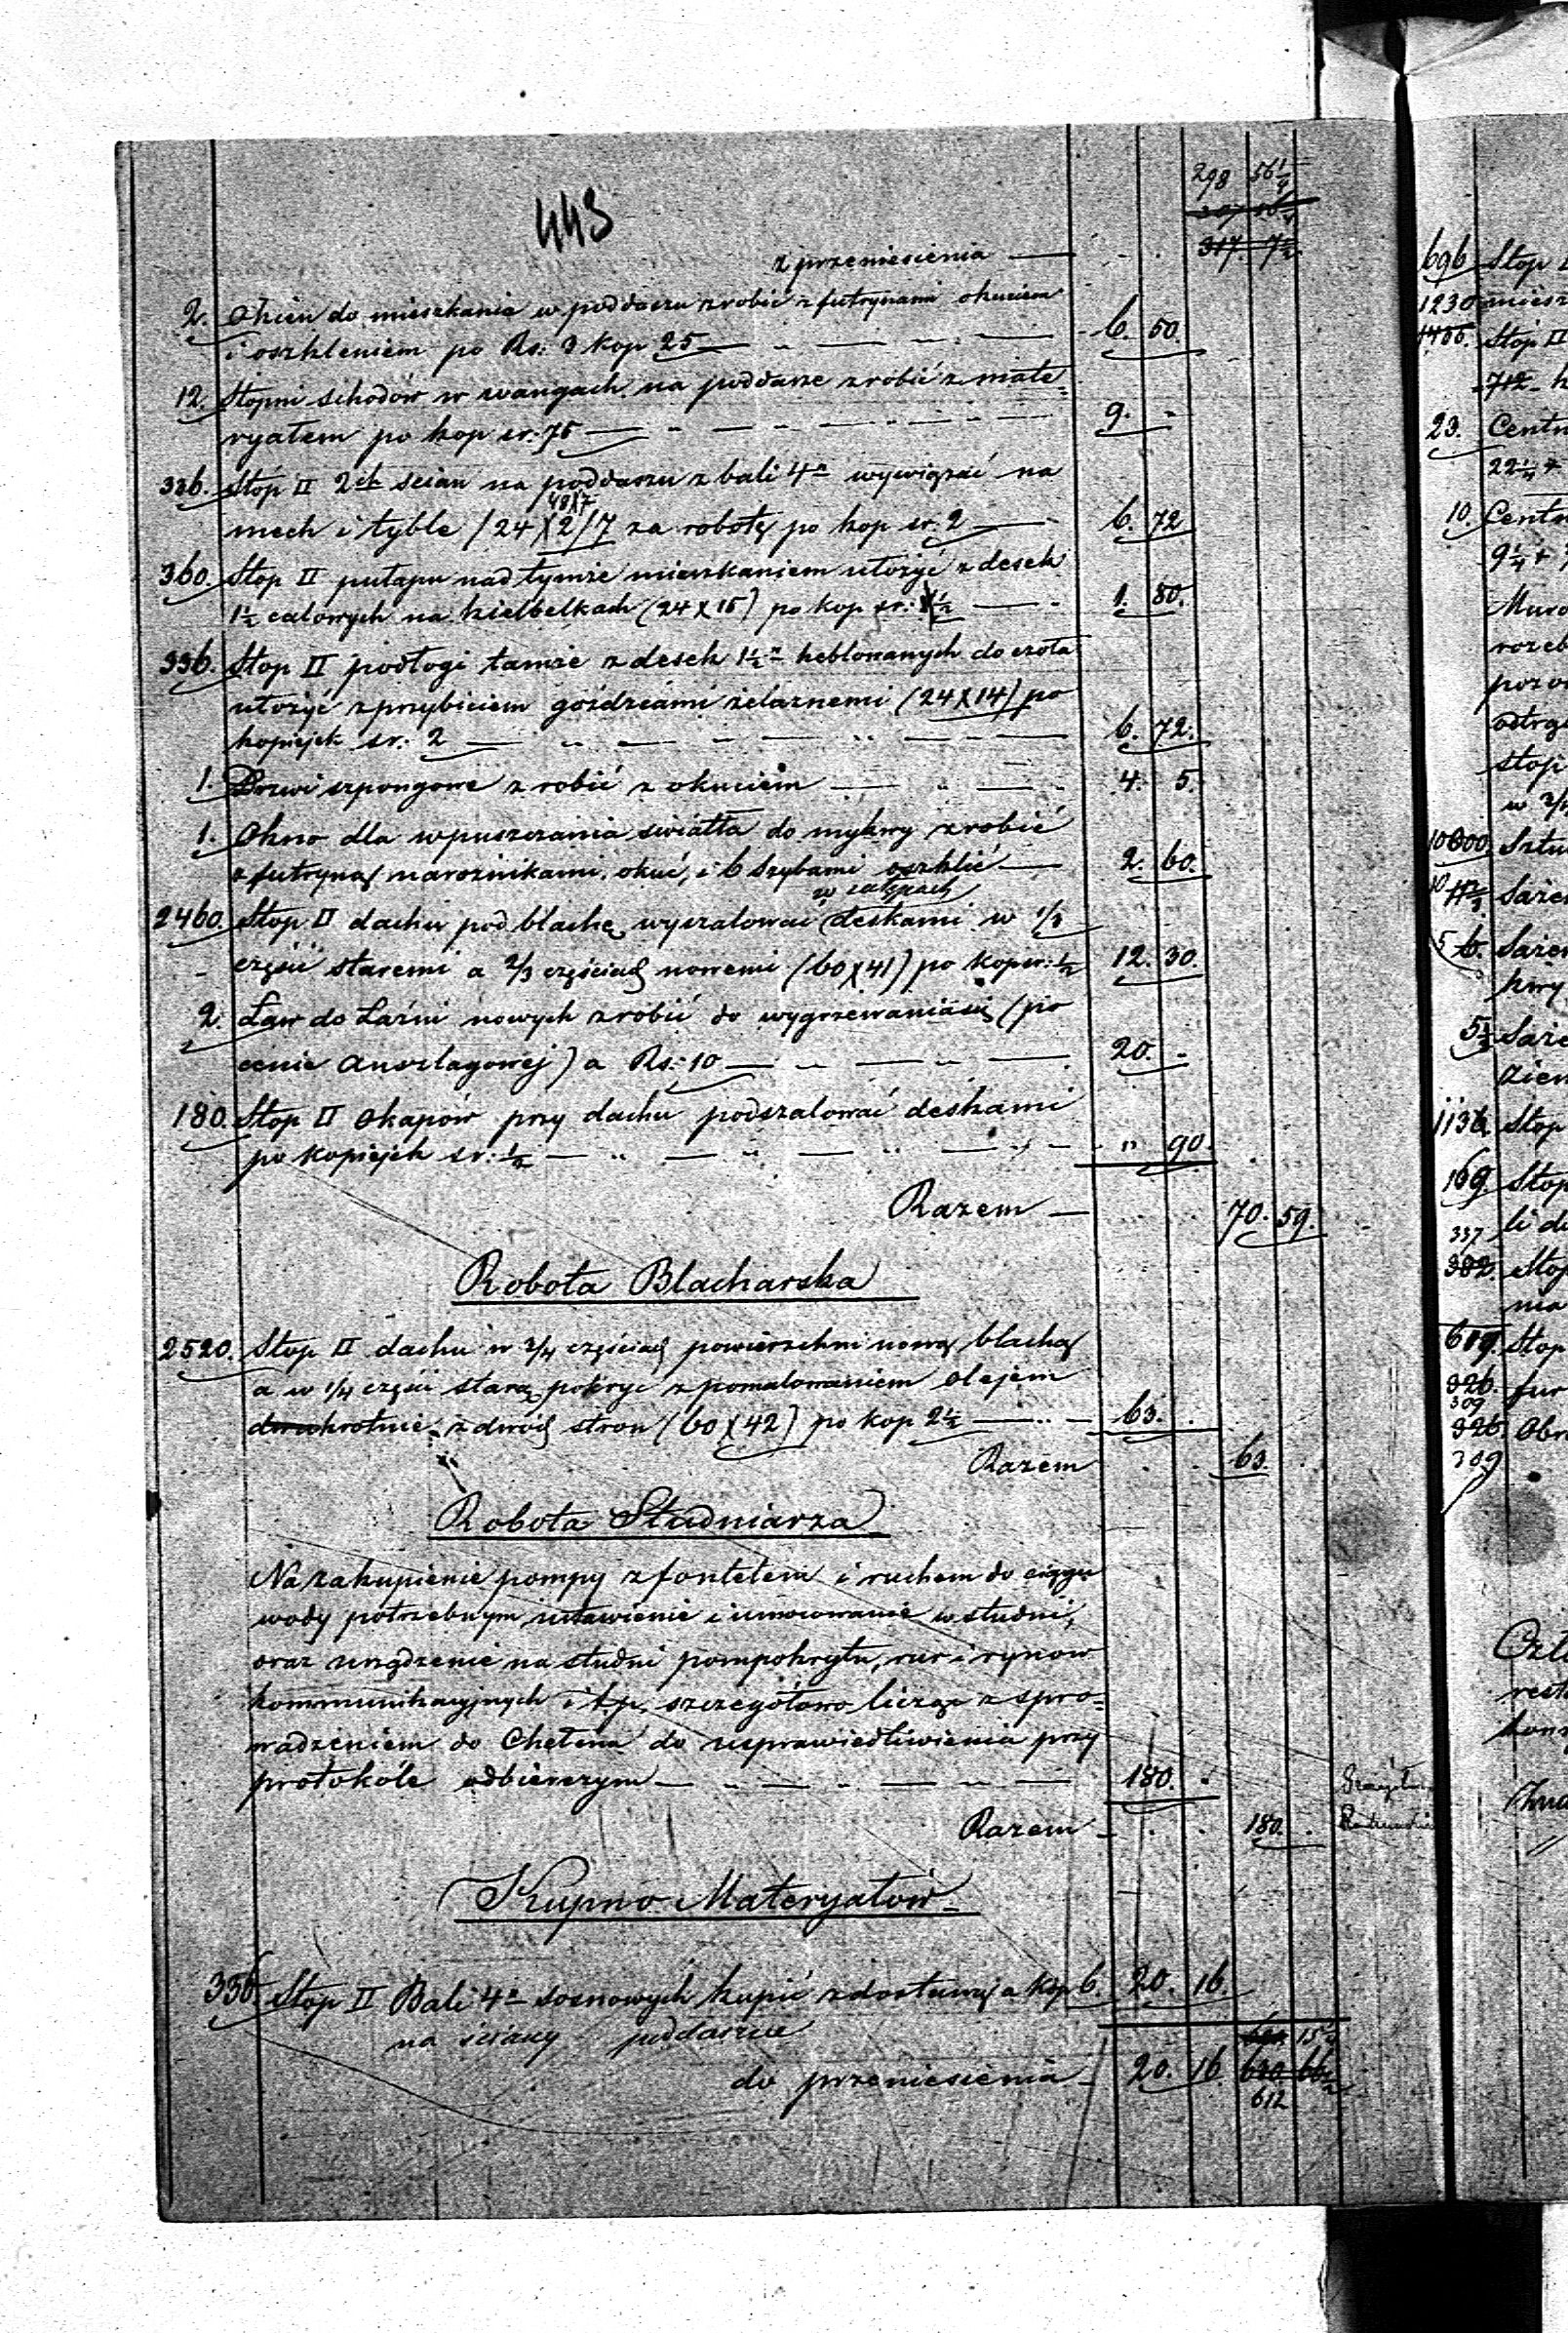 443
298 56 1/4
317. 7 1/2
z przeniesienia
2. Okien do mieszkania w poddaszu zrobić z futrynami okuciem
i oszkleniem po Rs: 3 kop 25 6. 50.
12. Stopni schodów w wangach na poddasze zrobić z mate=
ryałem po kop sr. 75 9. -
336. Stóp □ 2ch ścian na poddaszu z bali 4" wywiązać na
48X7
mech i tyble (24X2)7 za robotę po kop sr. 2 6. 72
360. Stop □ pułapu nad tymże mieszkaniem ułożyć z desek
1 1/2 calowych na kielbelkach (24X15) po kop sr: 1/2 1. 80.
336. Stop □ podłogi tamże z desek 1 1/2" heblowanych do czoła
ułożyć z przybiciem goździami żelaznemi (24X14) po
kopiejek sr. 2 6. 72.
1. Drzwi szpongowe zrobić z okuciem 4. 5.
1. Okno dla wpuszczania światła do mykwy zrobić
z futryną narożnikami okuć, i 6 szybami oszklić 2. 60.
2460. Stop □ dachu pod blachę wyszalować deskami w 1/3
części staremi a 2/3 częściach nowemi (60X41) po kop sr: 1/2 12. 30.
2. Ław do Łaźni nowych zrobić do wygrzewania się (po
cenie Anszlagowej) a Rs: 10 20. -
180. Stop □ Okapów przy dachu podszalować deskami
po kopiejek sr: 1/2 " 90.
Razem 70. 59.
Robota Blacharska
2520. Stop □ dachu w 3/4 częściach powierzchni nową blachą
a w 1/4 części starą pokryć z pomalowaniem olejem
dwukrotnie z dwóch stron (60X42) po kop 2 1/2 63.
Razem 63.
Robota Studniarza
Na zakupienie pompy z fontelem i ruchem do ciągu
wody potrzebnym ustawienie i umocowanie w studni,
oraz urządzenie na studni pompokrytu, rur i rynow
kommunikacyjnych i t.p. szczegółowo licząc z spro=
wadzeniem do Chełma do usprawiedliwienia przy
protokóle odbiorczym 180.
Razem 180.
Kupno Materyałów
336. Stop □ Bali 4" sosnowych kupić z dostawą a kop 6. 20. 16.
na ściany poddasza
15 1/4
do przeniesienia 20. 16. 630 66 1/2
612
696 Stop
1230
Stóp □
712
23. Centn
22 1/4 +
10. Centn
9 1/4 +
stop
w 2/
10000. Sztu
Sażen
5 Sażen
5 1/2 Saże
1136 Stop
169. Stop
337 li d
382. Stop
619. Stop
326.
309
326.
309